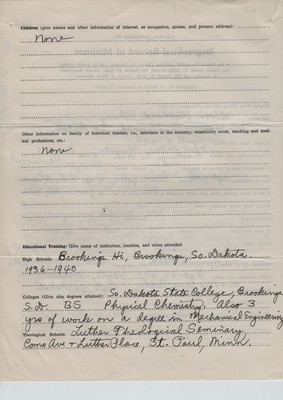 Children (give names and other information of interest, as occupation, spouse, and present address):
None
Other information on family of historical interest, i.e., members in the ministry, missionary work, teaching and med-
ical professions, etc.:
None
Educational Training: Give name of institution, location, and when attended.
High Schools: Brookings Hi, Brookings, So. Dakota
1936-1940
Colleges (Give also degrees attained): So. Dakota State College, Brookings
S.D. BS Physical Chemistry. Also 3
yrs. of work on a degree in Mechanical Engineering
Theological Schools: Luther Theological Seminary
Como Ave + Luther Place, St. Paul, Minn.